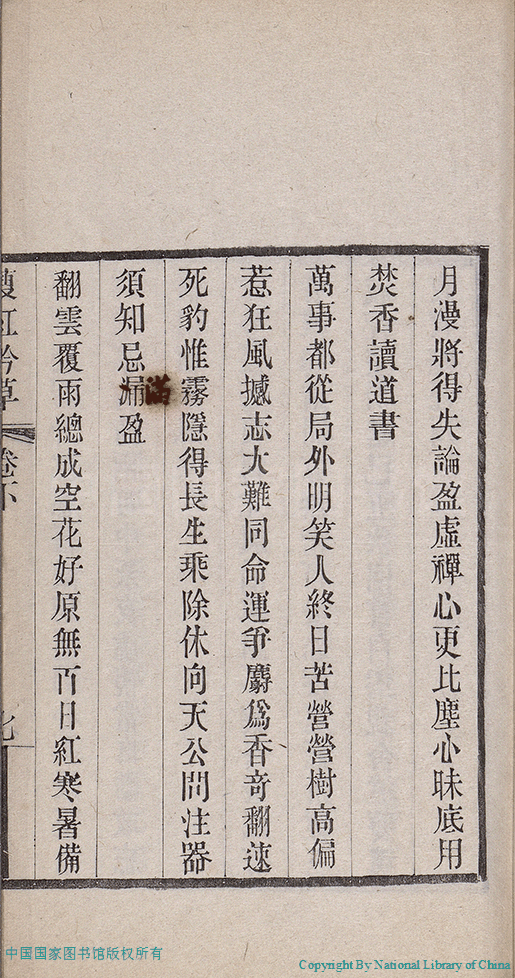 月漫將得失論盈虛禪心更比塵心昧底用
焚香讀道書
萬事都從局外明笑人終日苦營營樹高偏
惹狂風撼志大難同命運爭麝爲香奇翻速
死豹惟霧隱得長生乘除休向天公問注器
須知忌漏盈
滿
翻雲覆雨總成空花好原無百日紅寒暑備
紅吟草 卷下
中国国家图书馆版权所有
Copyright By National Library of China